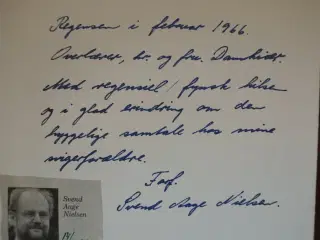 Regensen i februar 1966.
Overlærer, hr. og fru Damkier.
Med regensiel / fynsk hilsen
og i glad erindring om den
hyggelige samtale hos mine
svigerforældre.
Forf.
Svend Aage Nielsen.
Svend
Aage
Nielsen